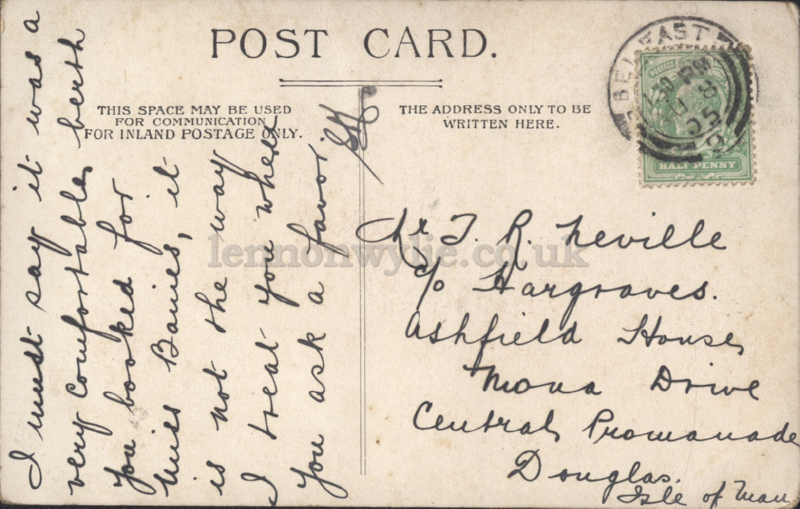 POST CARD.
THIS SPACE MAY BE USED
FOR COMMUNICATION
FOR INLAND POSTAGE ONLY.
THE ADDRESS ONLY TO BE
WRITTEN HERE.
BELFAST
HALF PENNY
I must say it was a
very comfortable berth
you booked for
Miss Baines, it
is not the way
I treat you when
you ask a favor
Mr T. R. Neville
c/o Hargraves.
Ashfield House
Mona Drive
Central Promanade
Douglas.
Isle of Man
lennonwylie.co.uk